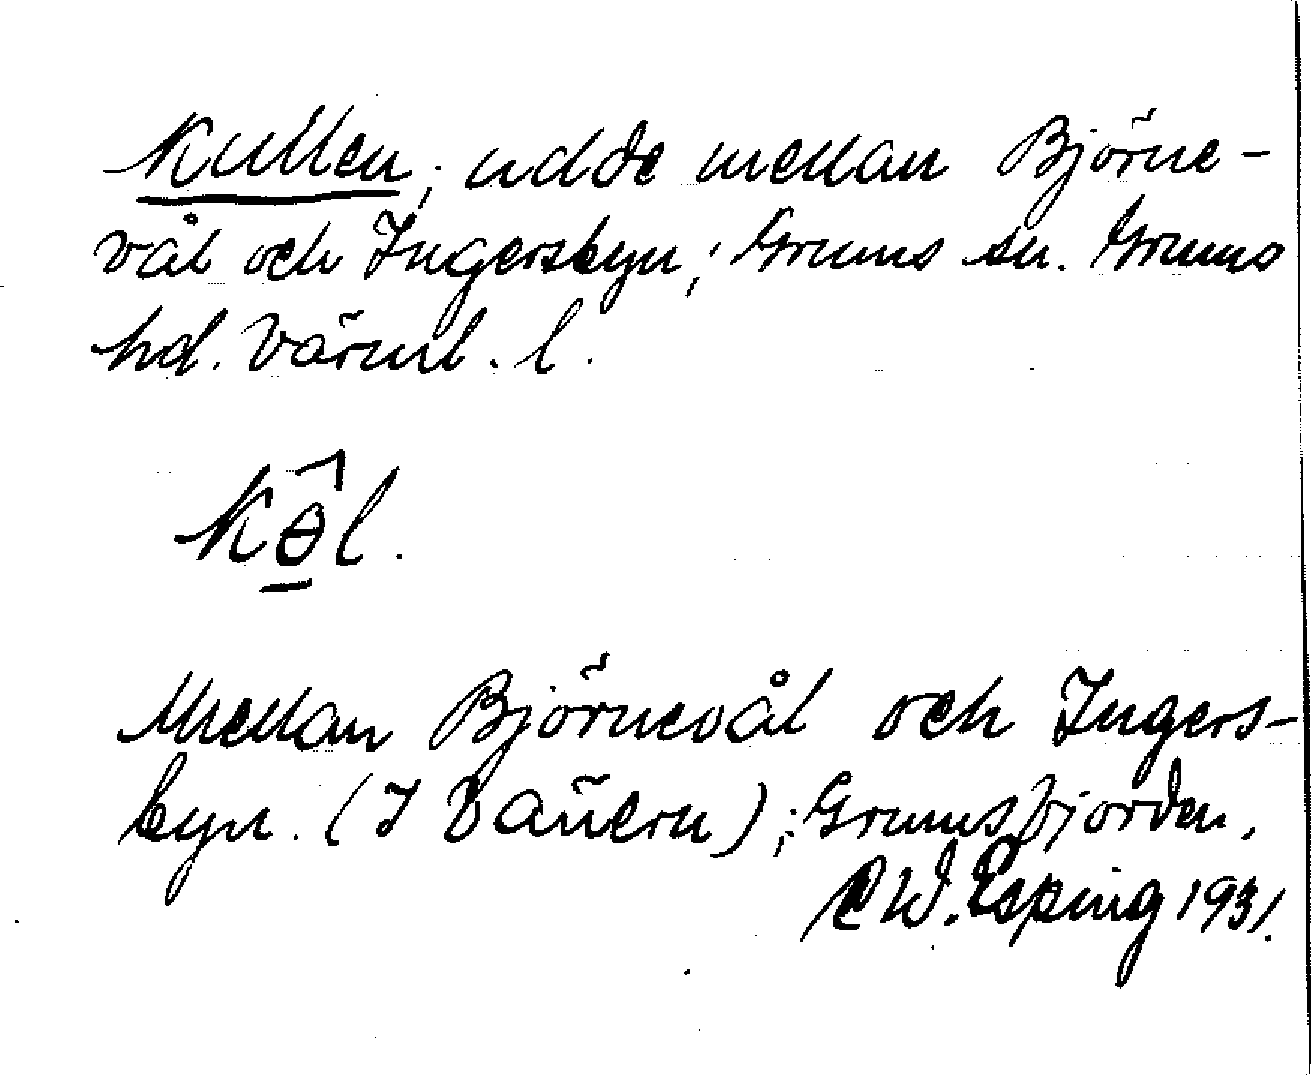 Kullen; udde mellan Björne-
vål och Ingersbyn; Grums sn. Grums
hd. Värml. l.
Kɵ̂l.
Mellan Björnevål och Ingers-
byn. (I Vänern); Grumsfjorden.
C W. Esping 1931.